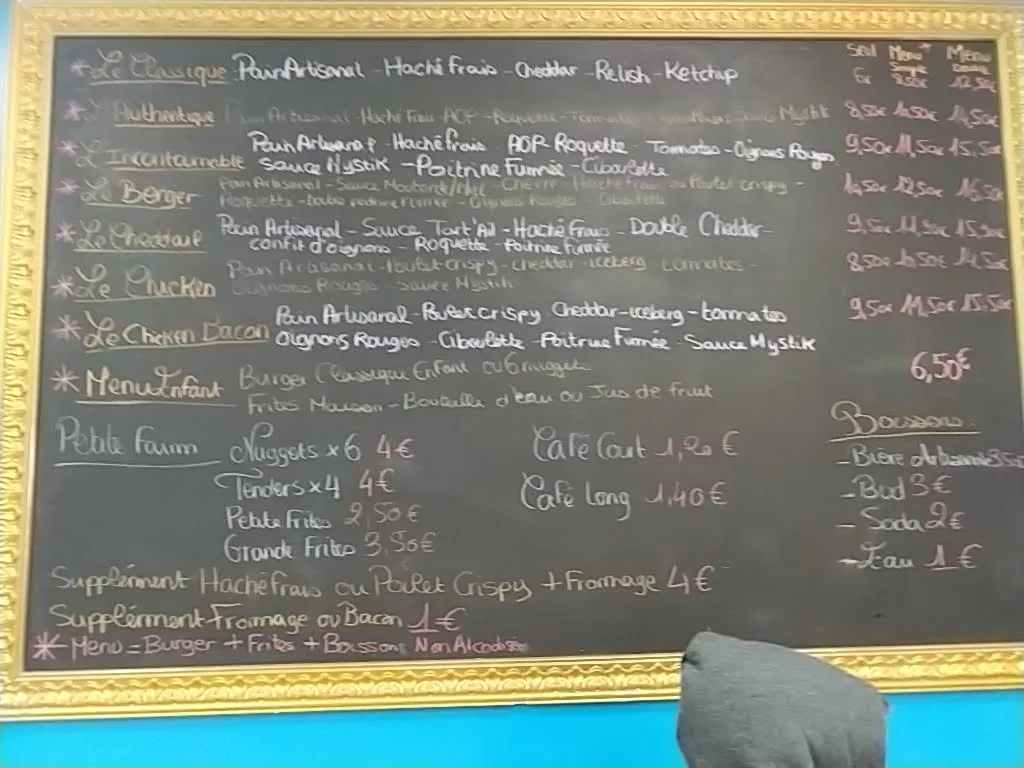 Seul Menu Menu
Simple
* Le Classique Pain Artisanal - Haché Frais - Cheddar - Relish - Ketchup 6€ 8,50€ 12,50€
* L'Authentique Pain Artisanal - Haché Frais AOP - Roquette - Tomates Mystik 8,50€ 10,50€ 14,50€
* L'Incontournable Pain Artisanal - Haché Frais AOP Roquette - Tomates - Oignons Rouges 9,50€ 11,50€ 15,50€
Sauce Mystik - Poitrine Fumée - Ciboulette
* Le Berger Pain Artisanal - Sauce Moutarde/Miel - Chèvre - Haché Frais ou Poulet crispy - 12,50€ 16,50€
Roquette - Double Poitrine Fumée - Oignons Rouges - Ciboulette
* Le Cheddail Pain Artisanal - Sauce Tart'Ail - Haché Frais - Double Cheddar - 9,50€ 11,50€ 15,50€
confit d'oignons - Roquette - Poitrine Fumée
* Le Chicken Pain Artisanal - Poulet crispy - cheddar - iceberg tommates - 8,50€ 10,50€ 14,50€
Oignons Rouges - Sauce Mystik
* Le Chicken Bacon Pain Artisanal - Poulet crispy Cheddar - iceberg - tommates 9,50€ 11,50€ 15,50€
Oignons Rouges - Ciboulette - Poitrine Fumée - Sauce Mystik
* Menu Enfant Burger Classique Enfant ou 6 nuggets 6,50€
Frites Maison - Bouteille d'eau ou Jus de fruit
Petite Faim Nuggets x 6 4€
Tenders x 4 4€
Petite Frites 2,50€
Grande Frites 3,50€
Café Court 1,20€
Café Long 1,40€
Boissons:
- Bière Artisanale 3,50
- Bud 3€
- Soda 2€
- Eau 1€
Supplément Haché Frais ou Poulet Crispy + Fromage 4€
Supplément Fromage ou Bacon 1€
* Menu = Burger + Frites + Boissons Non Alcoolisée